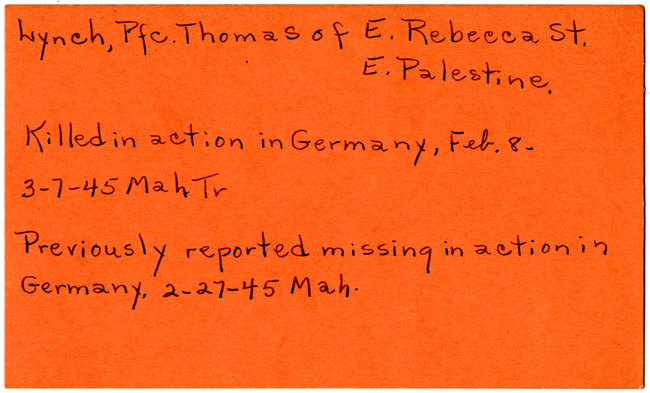 Lynch, Pfc. Thomas of E. Rebecca St.
E. Palestine.
Killed in action in Germany, Feb. 8-
3-7-45 Mah Tr
Previously reported missing in action in
Germany. 2-27-45 Mah.